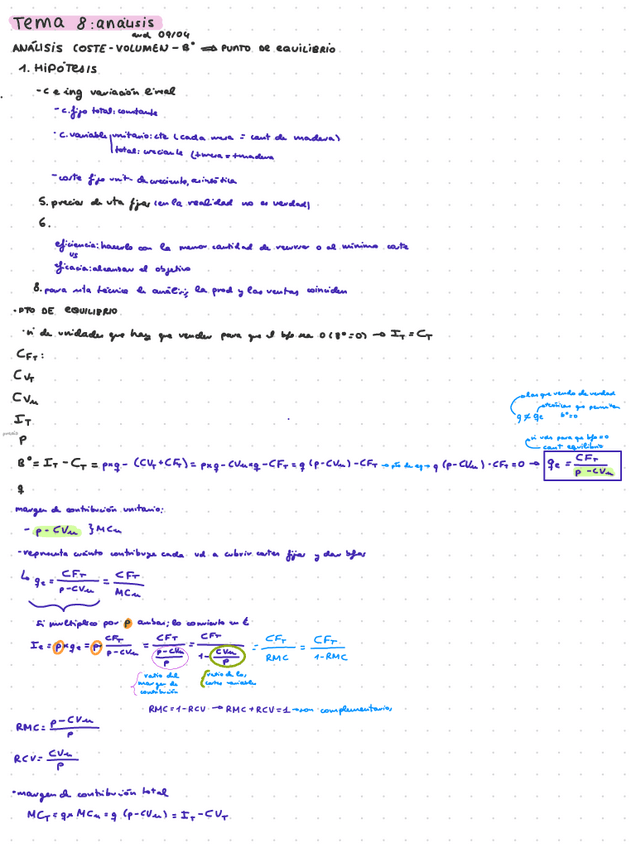 Tema 8: análisis
aud 09/04
ANÁLISIS COSTE-VOLUMEN-Bº ⟹ PUNTO DE EQUILIBRIO
1. HIPÓTESIS
- c e ing variación lineal
- c. fijo total: constante
· c. variable unitario: cte (cada mesa = cant de madera)
total: creciente (+mesa = +madera
- coste fijo unit. decreciente, asintótica
5. precios de vta fijos (en la realidad no es verdad)
6.
eficiencia: hacerlo con la menor cantidad de recursos o al mínimo coste
vs
eficacia: alcanzar el objetivo
8. para esta técnica de análisis la prod y las ventas coinciden
· PTO DE EQUILIBRIO
· nº de unidades que hay que vender para que el bfo sea 0 (Bº=0) → I_T = C_T
CF_T:
CV_T
CV_u
I_T
precio p
las que vendo de verdad
q ≠ qe
bº=0
nº uds para que bfo=0
cant equilibrio
Bº = I_T - C_T = p×q - (CV_T + CF_T) = p×q - CV_u×q - CF_T = q (p-CV_u) - CF_T → pto de eq → q (p-CV_u) - CF_T = 0 → qe = CF_T / (p-CV_u)
q
margen de contribución unitario:
- p-CV_u } MC_u
- representa cuánto contribuye cada ud. a cubrir costes fijos y dar bfos
↳ qe = CF_T / (p-CV_u) = CF_T / MC_u
Si multiplico por p ambas, lo convierto en €
Ie = p×qe = p · CF_T / (p-CV_u) = CF_T / ((p-CV_u)/p) = CF_T / (1 - CV_u/p) = CF_T / RMC = CF_T / (1-RMC)
ratio del margen de contribución
ratio de los costes variables
RMC = 1-RCV → RMC+RCV=1 → son complementarios
RMC = (p-CV_u) / p
RCV = CV_u / p
· margen de contribución total
MC_T = q×MC_u = q (p-CV_u) = I_T - CV_T